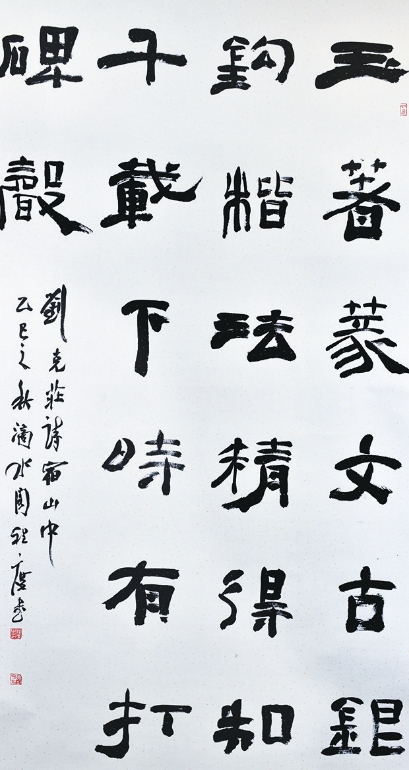 玉著篆文古銀
鈎楷法精得知
千載下時有打
碑聲
劉克莊詩宿山中
乙巳之秋滴水